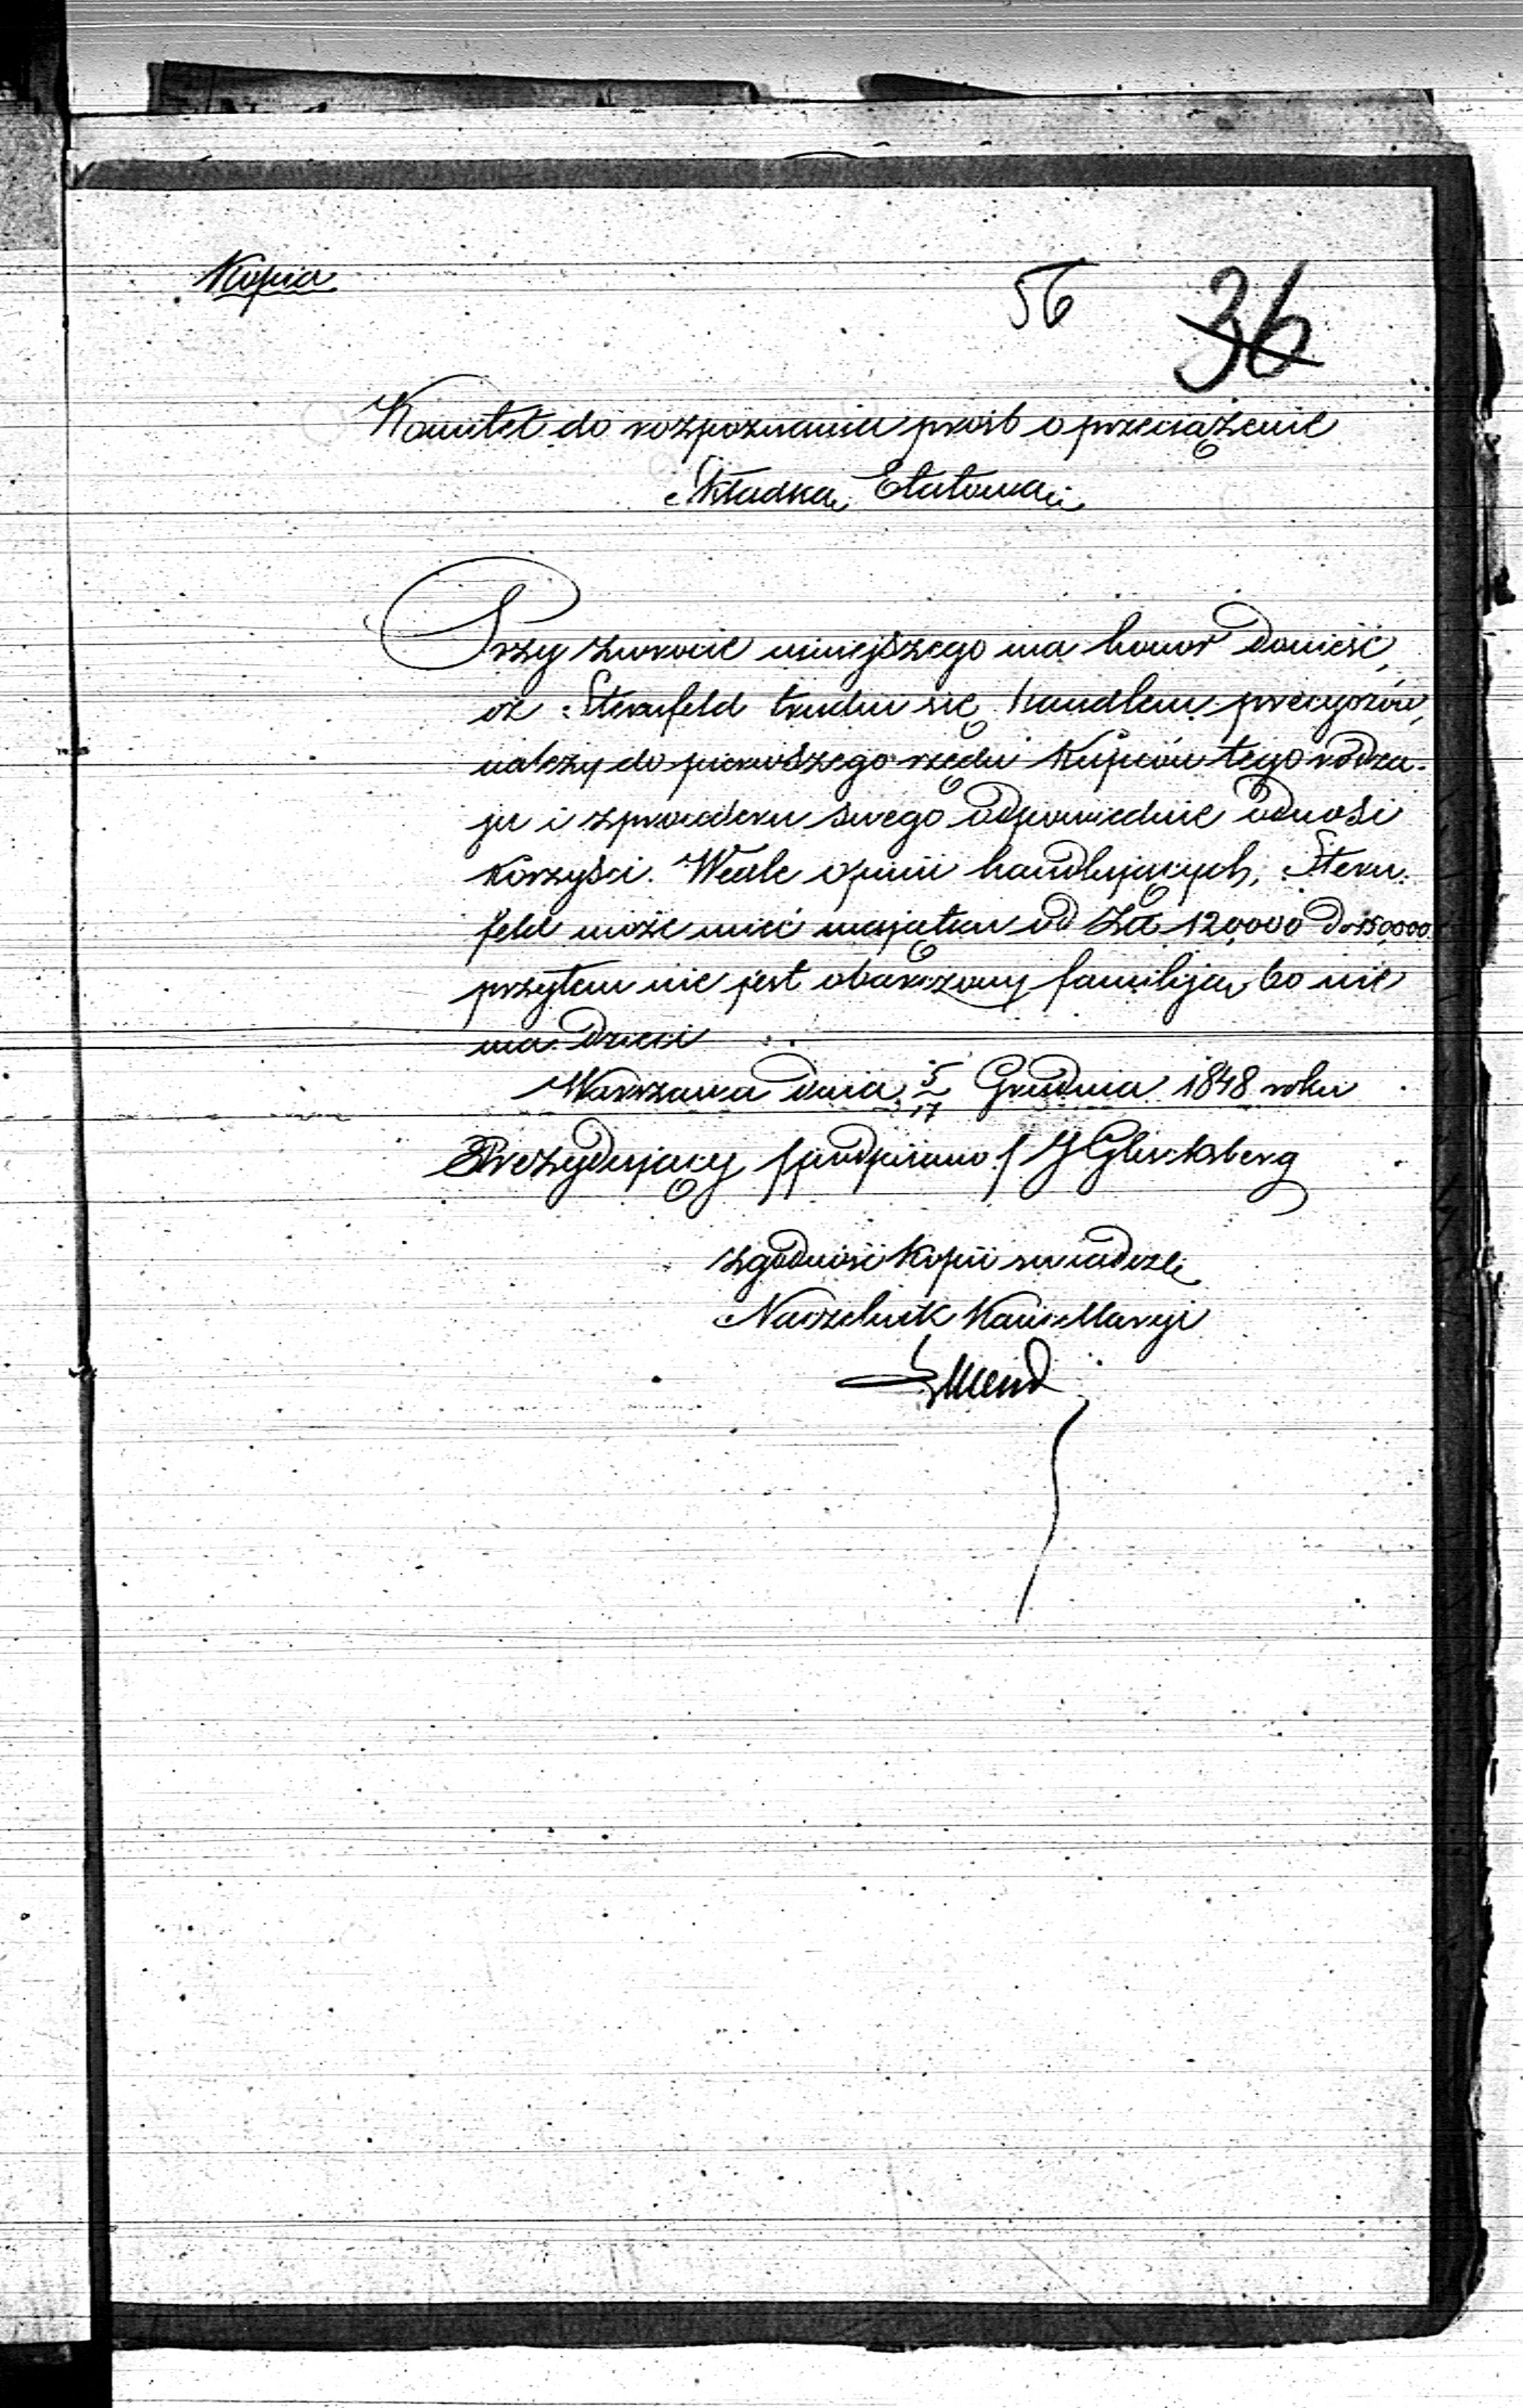 Kopia
56 36
Komitet do rozpoznania prośb o przeciążenie
Składką Etatową
Przy zwrocie niniejszego ma honor donieść,
iż Sternfeld trudni się handlem precyozów,
należy do pierwszego rzędu Kupców tego rodza-
ju i z procederu swego odpowiednie odnosi
korzyści. Wedle opinii handlujących, Stern-
feld może mieć majątku od Zł 120,000 do 150,000.
przytem nie jest obarczony familiją, bo nie
ma dzieci
Warszawa dnia 5/17 Grudnia 1848 roku
Prezydujący /podpisano/ J Glücksberg
Zgodność Kopii swiadczę
Naczelnik Kancellaryi